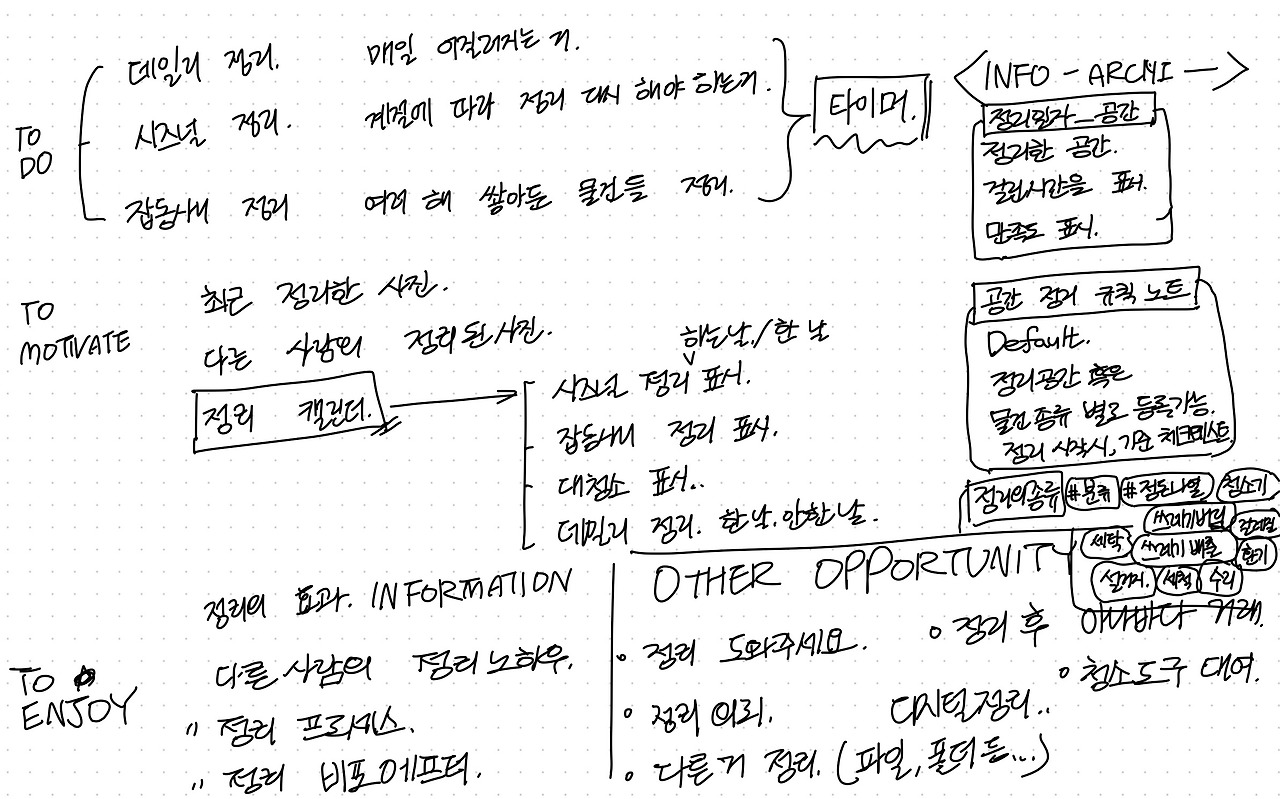 TO DO
데일리 정리. 매일 어질러지는 거.
시즈널 정리. 계절에 따라 정리 다시 해야 하는거.
잡동사니 정리 여러 해 쌓아둔 물건들 정리.
타이머.
TO MOTIVATE
최근 정리한 사진.
다른 사람의 정리된 사진.
정리 캘린더.
하는날/한 날
시즈널 정리 표시.
잡동사니 정리 표시.
대청소 표시..
데일리 정리. 한날. 안한날.
TO ENJOY
정리의 효과. INFORMATION
다른 사람의 정리 노하우.
" 정리 프로세스.
" 정리 비포에프터.
INFO - ARCHI
정리일자_공간
정리한 공간.
걸린시간을 표시.
만족도 표시.
공간 정리 규칙 노트
Default.
정리공간 혹은
물건 종류 별로 등록가능.
정리 시작시, 기준 체크리스트.
정리의 종류 #분류 #정돈나열 청소기
쓰레기버림 걸레질
세탁 쓰레기 배출 환기
설거지. 세척 수리
OTHER OPPORTUNIT
• 정리 도와주세요.
• 정리 의뢰.
• 다른거 정리. (파일, 폴더 등...)
디지털정리..
• 정리 후 아나바다 거래.
• 청소도구 대여.